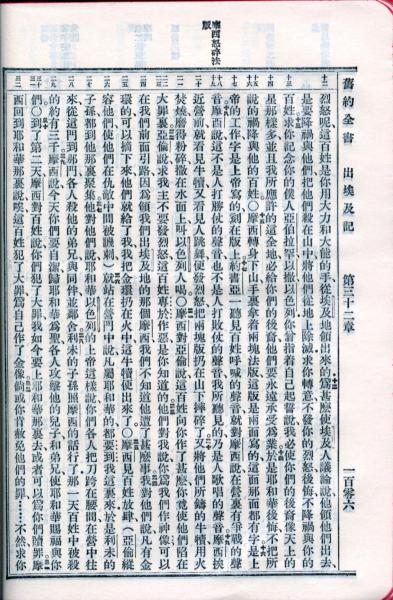 舊約全書 出埃及記 第三十二章 一百零六
摩西怒碎法版
十二 十三 十四 十五 十六 十七 十八 十九 二十 二一 二二 二三 二四 二五 二六 二七 二八 二九 三十 三一 三二
烈怒呢這百姓是你用大力和大能的手從埃及地領出來的爲甚麽使埃及人議論說他領他們出去
是要降禍與他們把他們殺在山中將他們從地上除滅求你轉意不發你的烈怒後悔不降禍與你的
百姓求你記念你的僕人亞伯拉罕以撒以色列你曾指着自己起誓說我必使你們的後裔像天上的
星那樣多並且我所應許的這全地必給你們的後裔他們要永遠承受爲業於是耶和華後悔不把所
說的禍降與他的百姓○摩西轉身下山手裏拿着兩塊法版這版是兩面寫的這面那面都有字是上
帝的工作字是上帝寫的刻在版上約書亞一聽見百姓呼喊的聲音就對摩西說在營裏有爭戰的聲
音摩西說這不是人打勝仗的聲音也不是人打敗仗的聲音我所聽見的乃是人歌唱的聲音摩西挨
近營前就看見牛犢又看見人跳舞便發烈怒把兩塊版扔在山下摔碎了又將他們所鑄的牛犢用火
焚燒磨得粉碎撒在水面上叫以色列人喝○摩西對亞倫說這百姓向你作了甚麽你竟使他們陷在
大罪裏亞倫說求我主不要發烈怒這百姓專於作惡是你知道的他們對我說你爲我們作神像可以
在我們前面引路因爲領我們出埃及地的那個摩西我們不知道他遭了甚麽事我對他們說凡有金
環的可以摘下來他們就給了我我把金環扔在火中這牛犢便出來了○摩西見百姓放肆(亞倫縱
容他們使他們在仇敵中間被譏刺)就站在營門中說凡屬耶和華的都要到我這裏來於是利未的
子孫都到他那裏聚集他對他們說耶和華以色列的上帝這樣說你們各人把刀跨在腰間在營中往
來從這門到那門各人殺他的弟兄與同伴並鄰舍利未的子孫照摩西的話行了那一天百姓中被殺
的約有三千摩西說今天你們要自潔歸耶和華爲聖各人攻擊他的兒子和弟兄使耶和華賜福與你
們○到了第二天摩西對百姓說你們犯了大罪我如今要上耶和華那裏去或者可以爲你們贖罪摩
西回到耶和華那裏說唉這百姓犯了大罪爲自己作了金像倘或你肯赦免他們的罪……不然求你